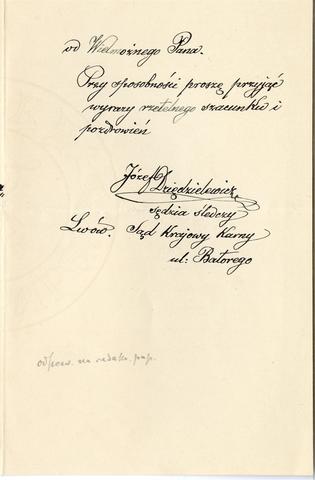 od Wielmożnego Pana.
Przy sposobności proszę przyjąć
wyrazy rzetelnego szacunku i
pozdrowień
Józef Dziędzielewicz
sędzia śledczy
Lwów. Sąd Krajowy Karny
ul: Batorego
odpow. na